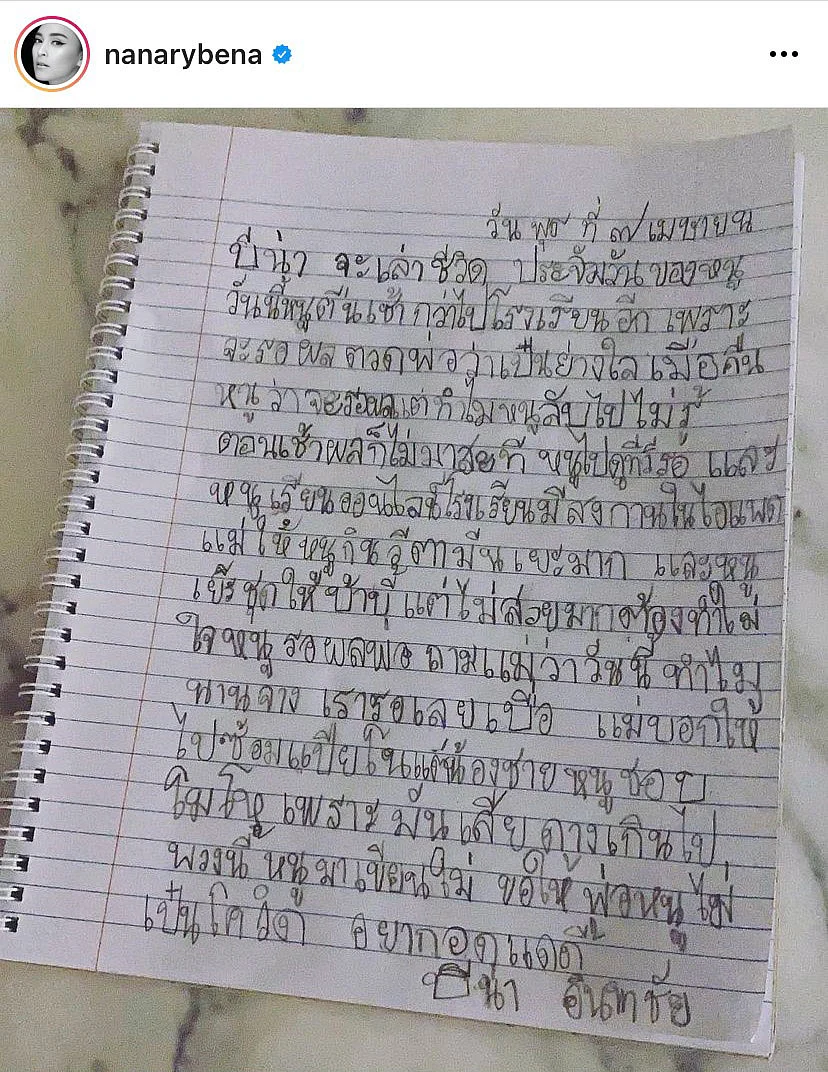 nanarybena
วันพุธ ที่ ๗ เมษายน
บีน่า จะเล่าชีวิต ประจัมวันของหนู
วันนี้หนูตืนเช้า กว่าไปโรงเรียนอีก เพราะ
จะรอ ผล ตวดพ่อว่าเป็นย่างใล เมื่อคืน
หนูว่า จะรอผลแต่ทำไมหนูลับไปไม่รู้
ตอนเช้าผลก็ไม่มาสะที หนูไปดูที่รี่รอ และ
หนูเรียนออนไลน์โรงเรียนมีสงกานในไอแพด
แม่ให้หนูกินวีตามีนเยะมาก และหนู
เย็รชุดให้บ้าบี้ แต่ไม่สวยมากต้องทำไม่
ใจหนู รอผลพ่อ ถามแม่ว่าวันนี้ ทำไม
นานจาง เรารอเลยเบื่อ แม่บอกให้
ไปซ้อมเปียโนแต่น้องชายหนูชอบ
โมโหเพราะมันเสียดังเกินไป
พวงนี้ หนูมาเขียนใม่ ขอให้พ่อหนูไม่
เป็นโควิด อยากอดแดดี้
บีน่า อินทชัย